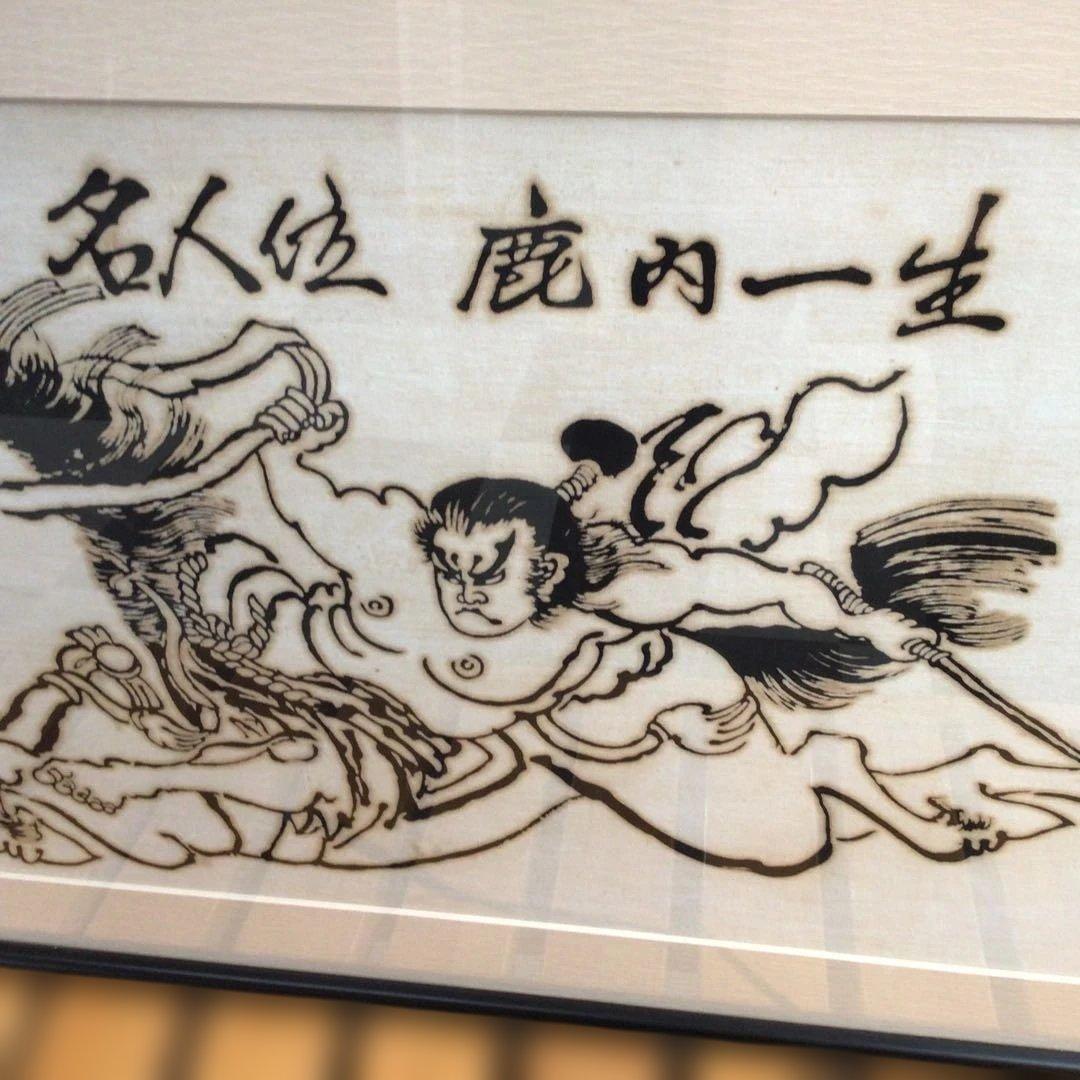 名人位 鹿内一生